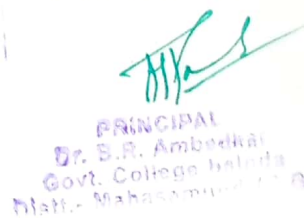 PRINCIPAL
Dr. B.R. Ambedkar
Govt. College
Distt.- Mahasamund